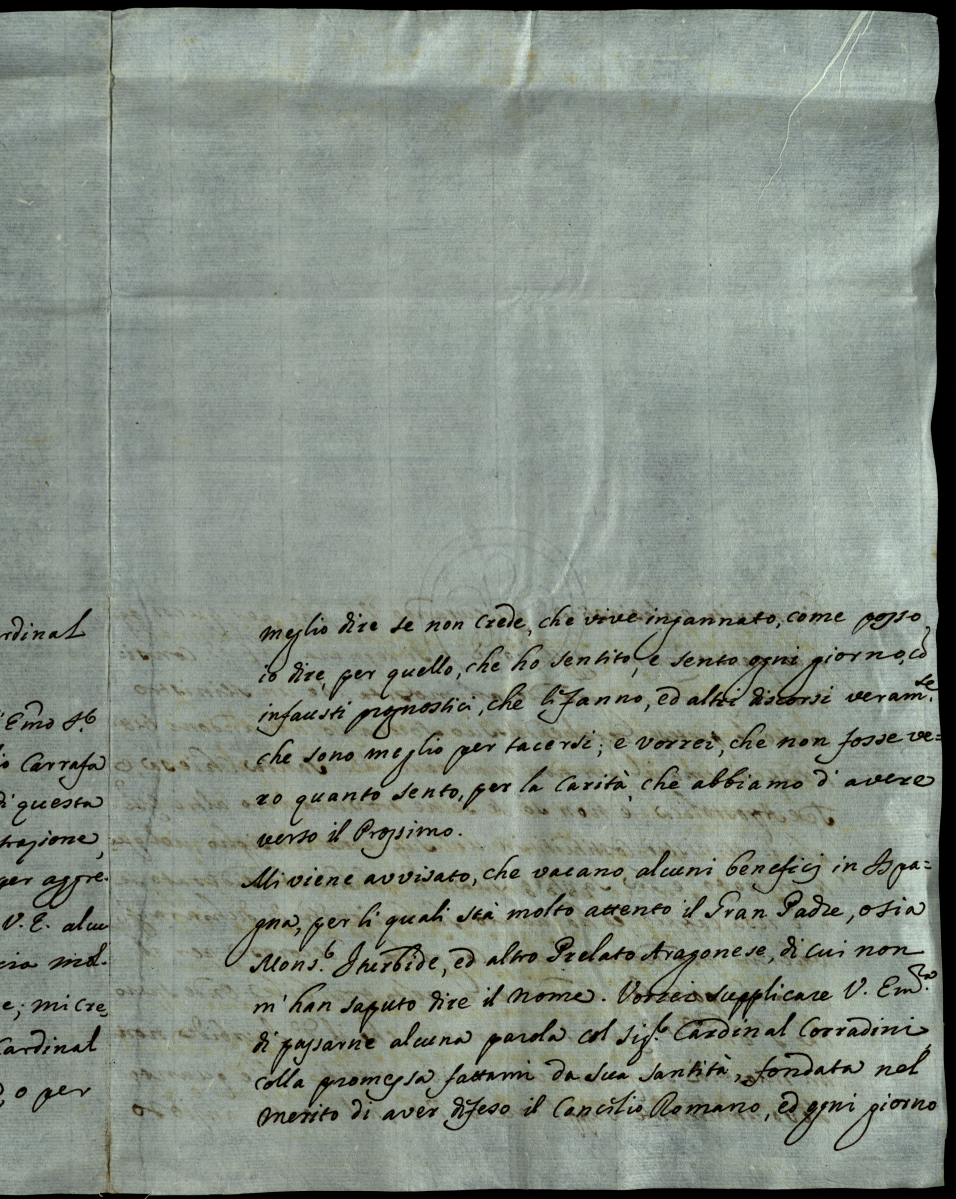 rdinal
Emo Sr.
o Carrafa
di questa
trazione,
per aggre-
V. E. alcu
cia mol-
e; mi cre-
Cardinal
o per
meglio dire se non crede, che vive ingannato, come posso
io dire, per quello, che ho sentito, e sento ogni giorno, cō
infausti prognostici, che li fanno, ed altri discorsi veramte.
che sono meglio per tacersi; e vorrei, che non fosse ve=
ro quanto sento, per la Carità, che abbiamo d'avere
verso il Prossimo.
Mi viene avvisato, che vacano, alcuni beneficij in Spa=
gna, per li quali stà molto attento il Gran Padre, o sia
Monsr. Iturbide, ed altro Prelato Aragonese, di cui non
m'han saputo dire il nome. Vorrei supplicare V. Emza.
di passarne alcuna parola col Sigr. Cardinal Corradini,
colla promessa fattami da sua santità, fondata nel
merito di aver difeso il Concilio Romano, ed ogni giorno